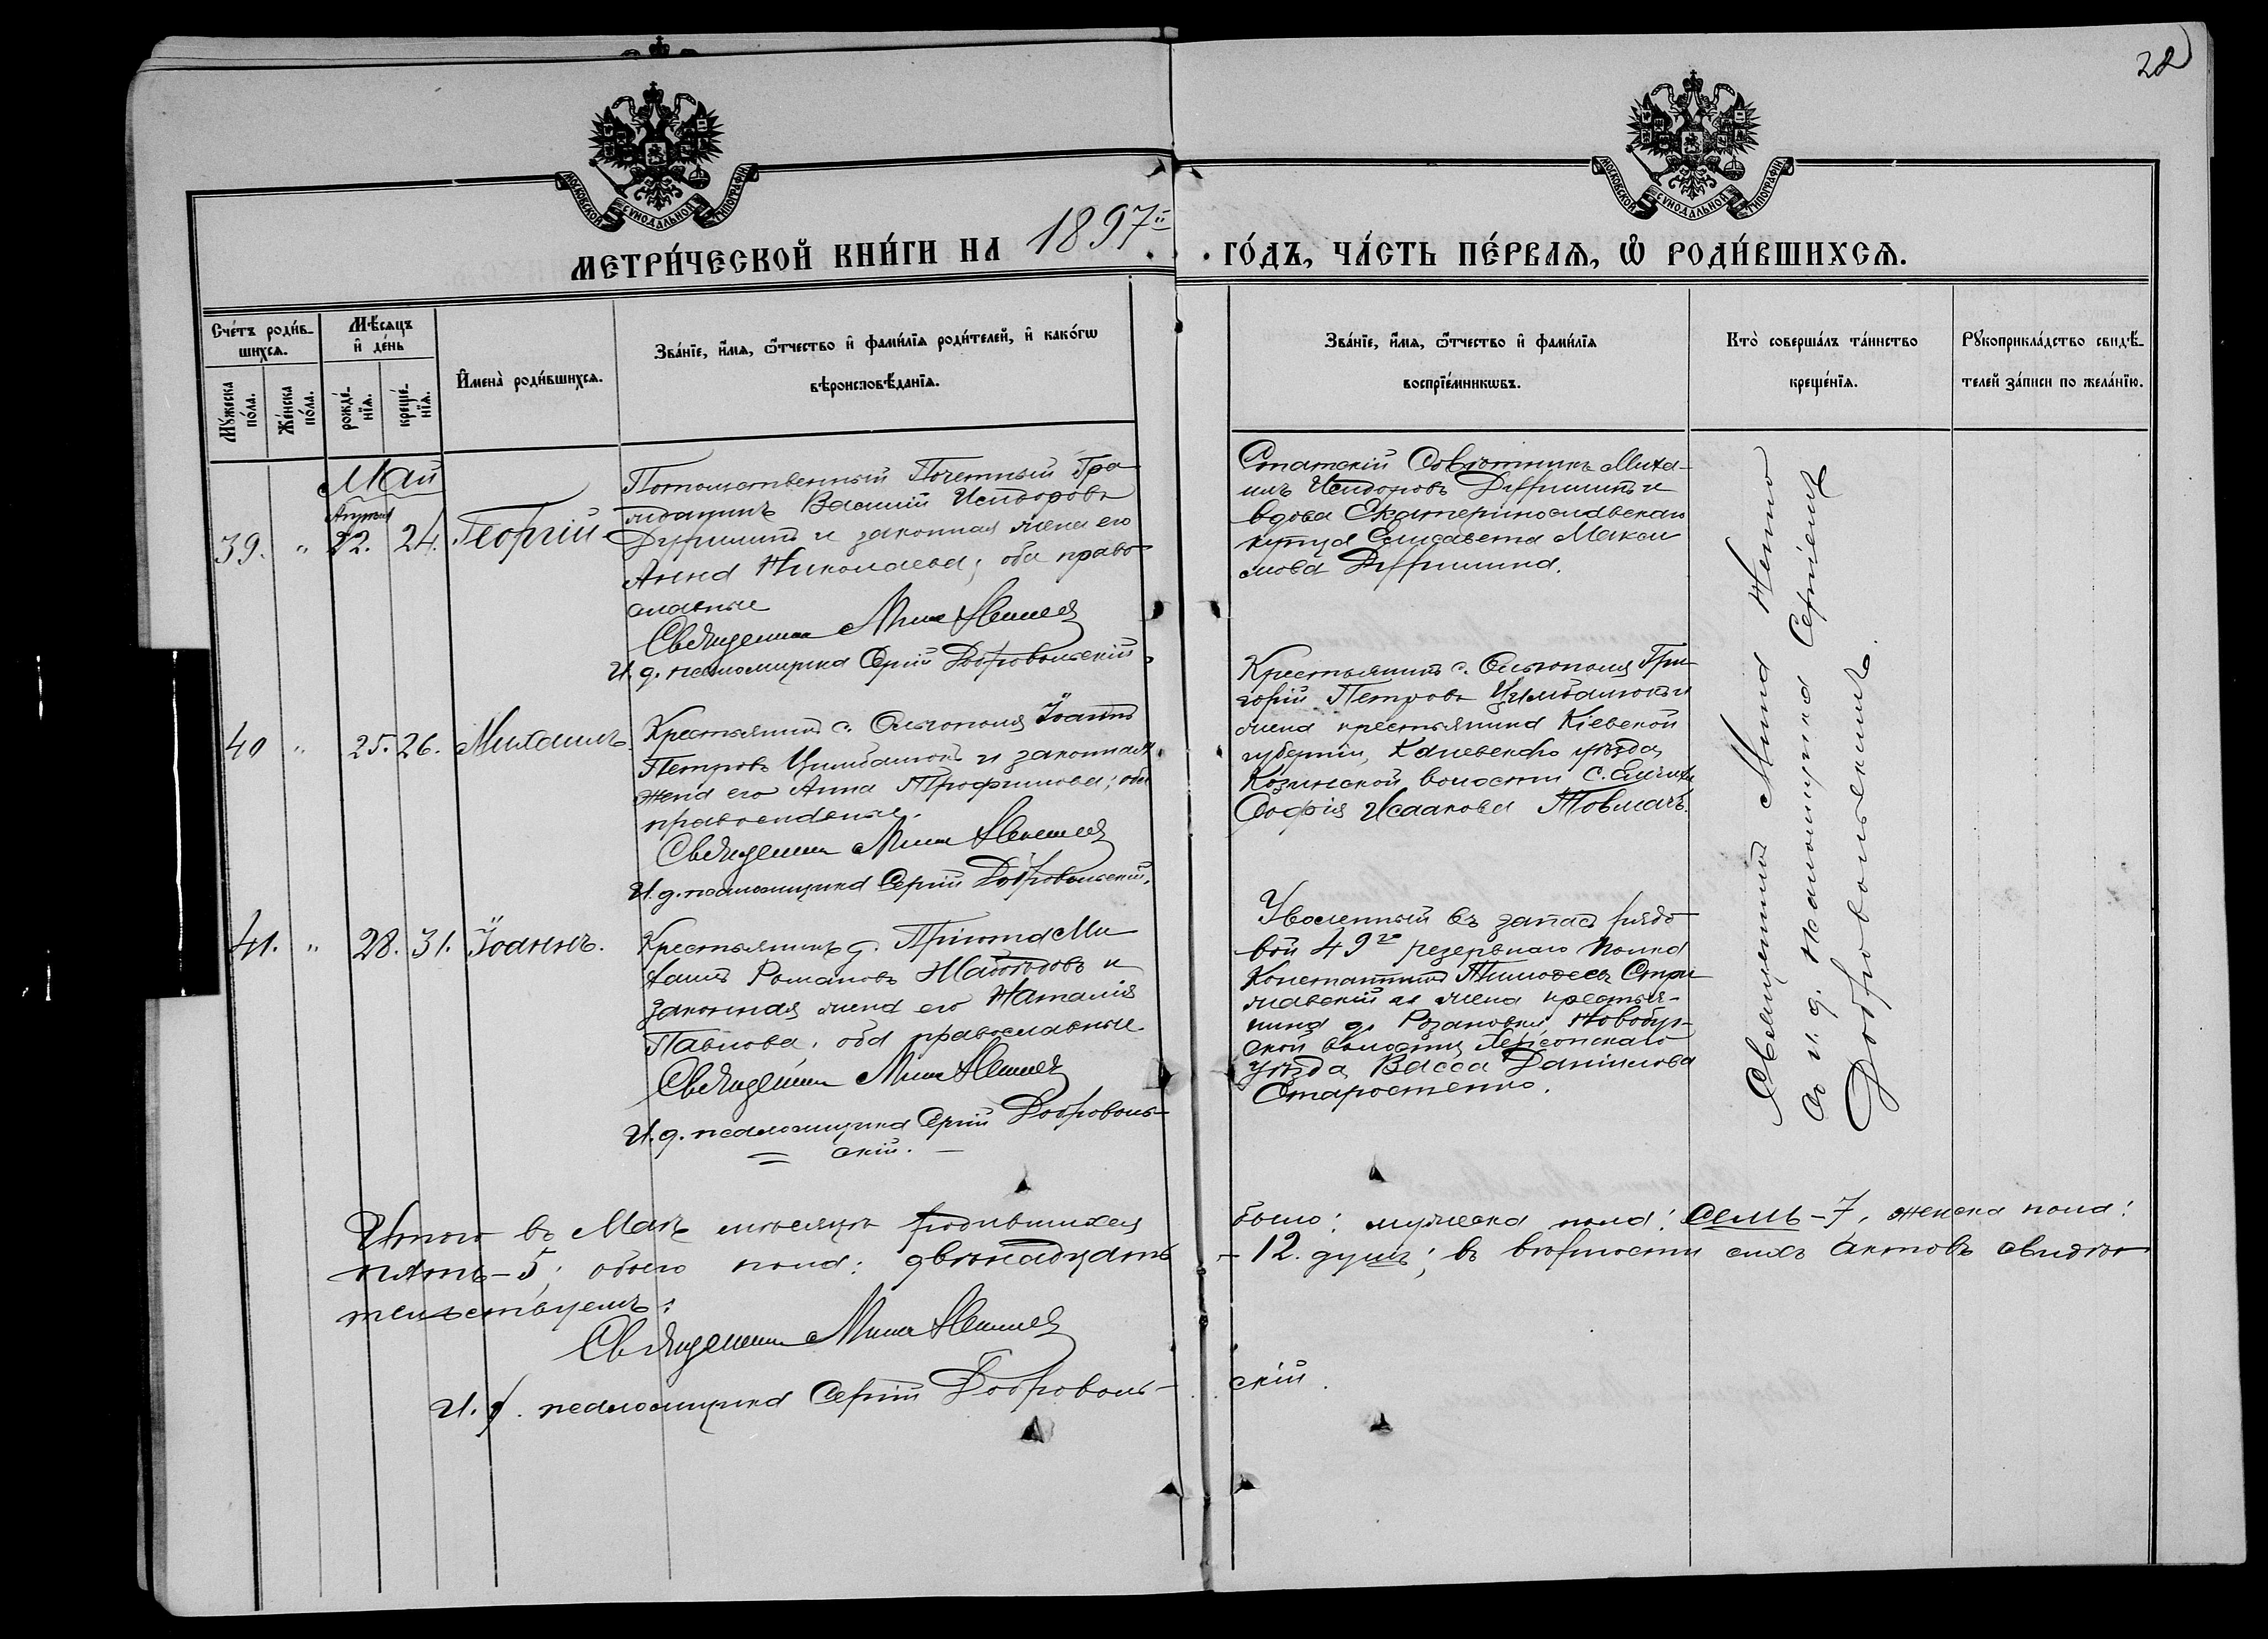 28
МОСКОВСКОЙ СѴНОДАЛЬНОЙ ТИПОГРАФІИ
МОСКОВСКОЙ СѴНОДАЛЬНОЙ ТИПОГРАФІИ
МЕТРИ́ЧЕСКОЙ КНИ́ГИ НА 1897й
ГО́ДЪ, ЧА́СТЬ ПЕ́РВАѦ, Ѡ҆ РОДИ́ВШИХСѦ.
Сче́тъ роди́в-
шихсѧ.
Мꙋ́жеска по́ла.
Же́нска по́ла.
Мѣ́сѧцъ
и҆ де́нь
рожде́-
нїѧ.
креще́-
нїѧ.
И҆мена̀ роди́вшихсѧ.
Зва́нїе, и҆́мѧ, ѻ҆́тчество и҆ фами́лїѧ роди́телей, и҆ како́гѡ
вѣроисповѣ́данїѧ.
Зва́нїе, и҆́мѧ, ѻ҆́тчество и҆ фами́лїѧ
воспрїе́мникѡвъ.
Кто̀ соверша́лъ та́инство
креще́нїѧ.
Рꙋкоприкла́дство свидѣ́-
телей за́писи по жела́нїю.
Май
Апрѣля
39. " 22. 24. Георгій
Потомственный Почетный Гра-
жданинъ Василій Исидоровъ
и законная жена его
Анна Николаева; оба право-
славные
Священникъ Мина
И. д. псаломщика Сергій Добровольскій.
Статскій Совѣтникъ Миха-
илъ Исидоровъ и
вдова Екатеринославскаго
купца Елисавета Макси-
мова
40 " 25. 26. Михаилъ.
Крестьянинъ с. Ольгополя Іоаннъ
Петровъ Цимбалюкъ и законная
жена его Анна Трофимова; оба
православные.
Священникъ Мина
И. д. псаломщика Сергій Добровольскій.
Крестьянинъ с. Ольгополя Гри-
горій Петровъ Цимбалюкъ и
жена крестьянина Кіевской
губерніи, Каневскаго уѣзда,
Козинской волости с.
Софія Исаакова Товмачъ.
41. " 28. 31. Іоаннъ.
Крестьянинъ д. Пріюта Ми-
хаилъ Романовъ и
законная жена его Наталія
Павлова, оба православные.
Священникъ Мина
И. д. псаломщика Сергій Доброволь-
скій.
Уволенный въ запасъ рядо-
вой 49го резервнаго полка
Константинъ Тимофеевъ Стри-
жавскій и жена крестья-
нина д. Розановки, Новобуг-
ской волости, Херсонскаго
уѣзда, Васса Даніилова
Старостенко.
Священникъ Мина
съ и. д. псаломщика Сергіемъ
Добровольскимъ.
Итого въ Маѣ мѣсяцѣ родившихся было: мужеска пола: семь-7, женска пола:
пять-5; обоего пола: двѣнадцать - 12. душъ; въ вѣрности сихъ актовъ свидѣ-
тельствуемъ:
Священникъ Мина
И. д. псаломщика Сергій Доброволь- скій.